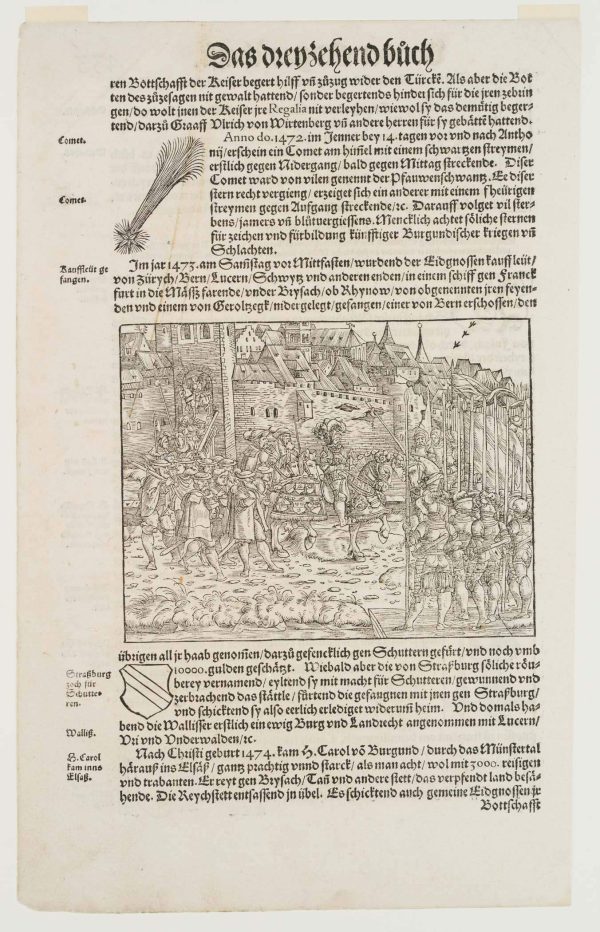 Das dreyzehend bůch
ren Bottschafft der Keiser begert hilff vñ zůzug wider den Türckẽ. Als aber die Bot
ten des zůzesagen nit gewalt hattend/ sonder begertends hindersich für die jren zebrin
gen/ do wolt jnen der Keiser jre Regalia nit verleyhen/ wiewol sy das demůtig beger-
tend/ darzů Graaff Vlrich von Wirtenberg vñ andere herren für sy gebättẽ hattend.
Comet.
Anno do. 1472. im Jenner bey 14. tagen vor vnd nach Antho
nij/ erschein ein Comet am him̃el mit einem schwartzen streymen/
erstlich gegen Nidergang/ bald gegen Mittag streckende. Diser
Comet ward von vilen genennt der Pfauwenschwantz. Ee diser
Comet.
stern recht vergieng/ erzeiget sich ein anderer mit einem fheürigen
streymen gegen Aufgang streckende/ ꝛc. Darauff volget vil ster-
bens/ jamers vñ blůtuergiessens. Mencklich achtet söliche sternen
für zeichen vnd fürbildung künfftiger Burgundischer kriegen vñ
Schlachten.
Kauffleüt ge
fangen.
Im jar 1473. am Samstag vor Mittfasten/ wurdend der Eidgnossen kauffleüt/
von Zürych/ Bern/ Lucern/ Schwytz vnd anderen enden/ in einem schiff gen Franck
furt in die Mäß farende/ vnder Brysach/ ob Rhynow/ von obgenennten jren feyen-
den vnd einem von Geroltzegk/ nidergelegt/ gefangen/ einer von Bern erschossen/ den
übrigen all jr haab genom̃en/ darzů gefencklich gen Schuttern gefürt/ vnd noch vmb
Straßburg
zoch für
Schutte-
ren.
10000. gulden geschätzt. Wiebald aber die von Straßburg söliche röu-
berey vernamend/ eyltend sy mit macht für Schutteren/ gewunnend vnd
zerbrachend das stättle/ fürtend die gefangnen mit jnen gen Straßburg/
vnd schicktend sy also eerlich erlediget widerum̃ heim. Vnd domals ha-
Walliß.
bend die Wallisser erstlich ein ewig Burg vnd Landrecht angenommen mit Lucern/
Vri vnd Vnderwalden/ ꝛc.
H. Carol
kam inns
Elsaß.
Nach Christi geburt 1474. kam H. Carol võ Burgund/ durch das Münstertal
härauß ins Elsäß/ gantz prachtig vnnd starck/ als man acht/ wol mit 3000. reisigen
vnd trabanten. Er reyt gen Brysach/ Tañ vnd andere stett/ das verpfendt land besä-
hende. Die Reychstett entsassend jn übel. Es schicktend auch gemeine Eidgnossen jr
Bottschafft